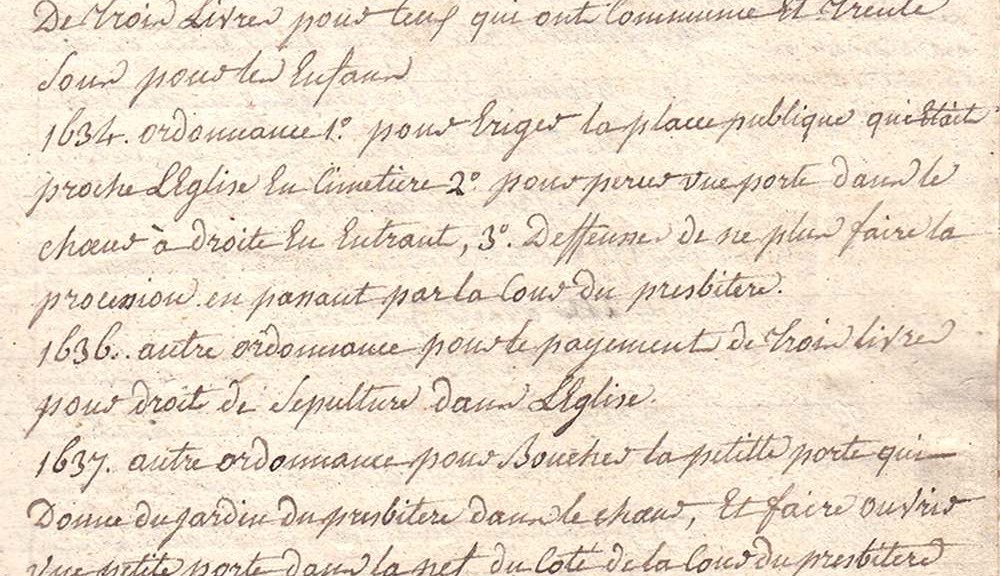 De Trois Livres pour ceux qui ont Communié Et Trente
Sous pour les Enfans
1634. ordonnance 1° pour Eriger la place publique qui Etait
proche LEglise En Cimetiere 2° pour percer vue porte dans le
chœur à droite En Entrant, 3°. Deffenses de ne plus faire la
procession en passant par la Cour du presbitere.
1636. autre ordonnance pour le payement de Trois livres
pour droit de Sepulture dans LEglise.
1637. autre ordonnance pour Boucher la petitte porte qui
Donne du jardin du presbitere dans le chœur, Et faire ouvrir
vue petite porte dans la nef du Coté de la Cour du presbitere